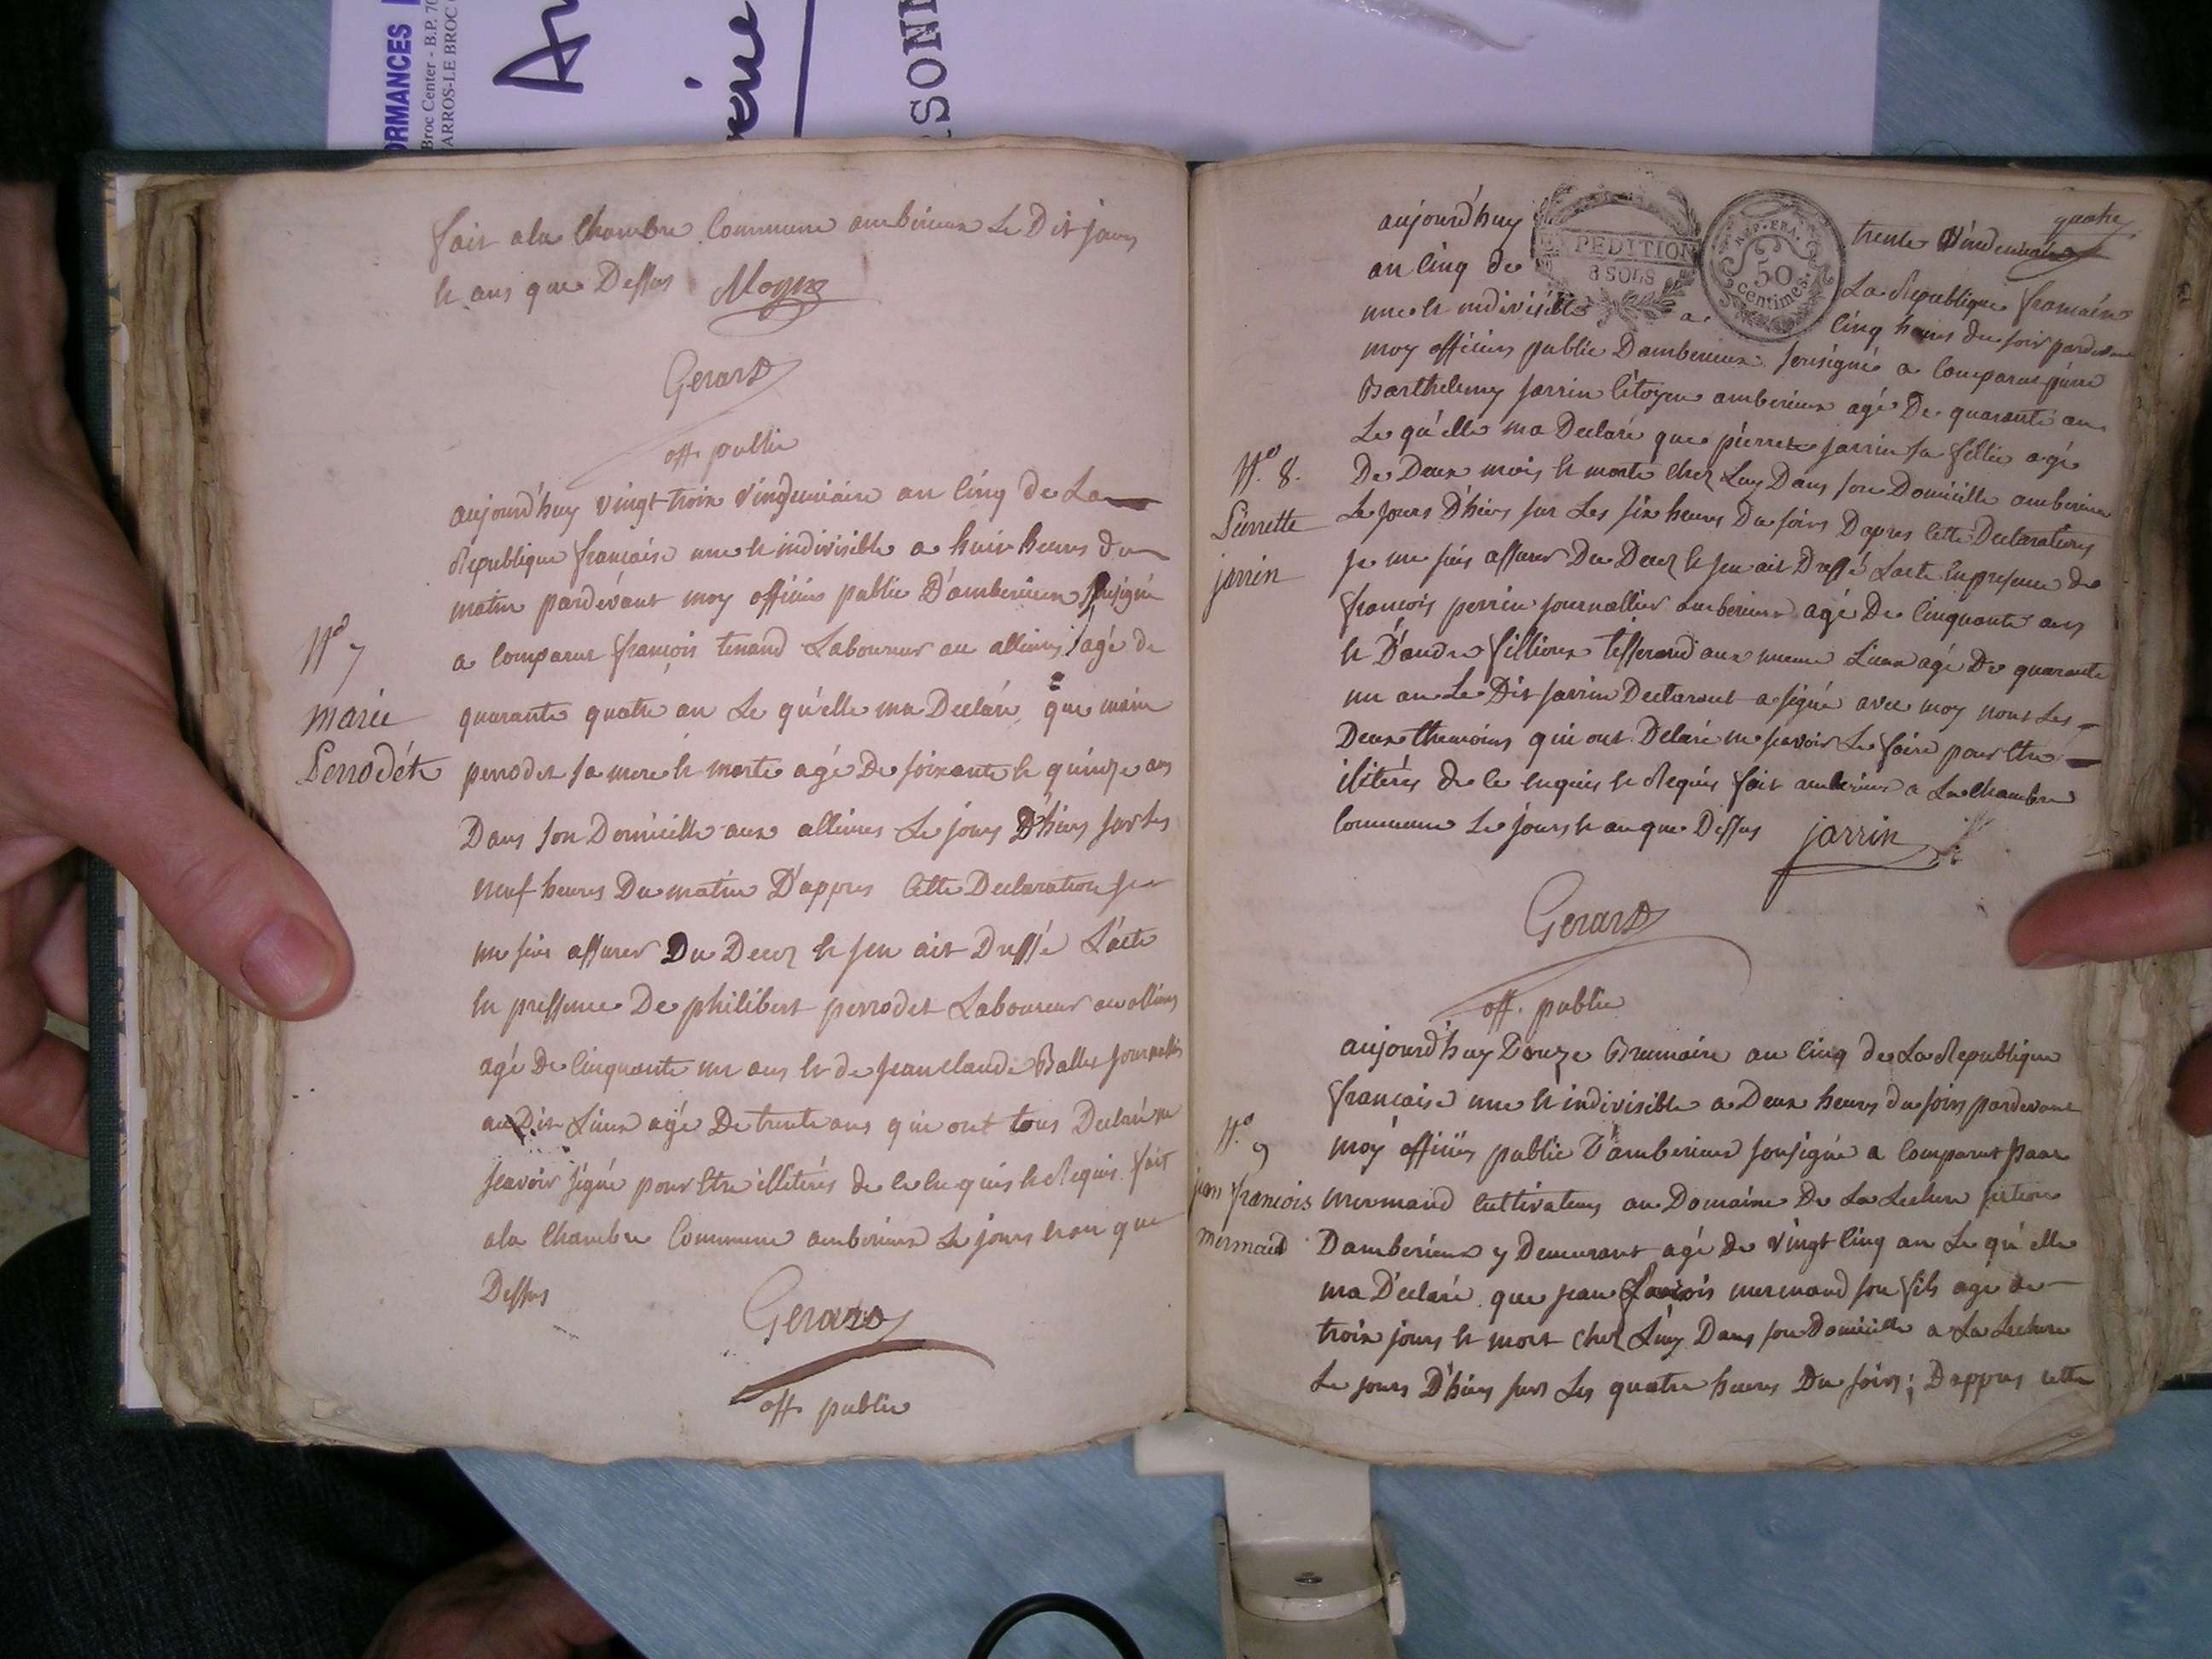 ORMANCES
Broc Center - B.P. 70
ARROS-LE BROC
SONN
fait ala Chambre Commune amberieux Le Dit jours
h ans que Dessus
Gerard
off. public
aujourd'huy vingt trois vindemiaire an cinq de La
Republique francaise une h indivisible a huit heures du
matin pardevant moy officier public D'amberieux sousigné
a comparut françois tenand Laboureur au allimes agé de
quarante quatre an Le qu'elle ma Declaré que marie
perrodet sa mere h morte agé De soixante h quinze ans
Dans son Domicille aux allimes Le jours D'hiers sur Les
neuf heures Du matin D'appres cette Declaration je
me suis assurer Du Decez h jeu ait Dressé L'acte
en pressence De philibert perrodet Laboureur au allimes
agé De cinquante un ans h de jean claude Ballet journallier
au Dit Lieux agé De trente ans qui ont tous Declaré ne
scavoir signé pour être illitérés de ce enquis h Requis fait
ala Chambre Commune amberieux Le jours h an que
Dessus
Gerard
off. public
N.o 7
marie
Perrodét
quatre
aujourd'huy trente Vindemiaire
EXPEDITION
8 SOLS
REP. FRA.
50
centimes
an cinq de La Republique francaise
une h indivisible a cinq heures du soir pardevant
moy officiers public D'amberieux sousigné a comparut pierre
Barthelemy jarrin citoyen amberieux agé De quarante an
Le qu'elle ma Declaré que pierrete jarrin sa fillie agé
De Deux mois h morte chez Luy Dans son Domicille amberieux
Le jours D'hiers sur Les six heures Du soirs D'apres cette Declarations
je me suis assurer Du Decez h jeu ait Dressé L'acte en presence de
françois perrin journallier amberieux agé De cinquante ans
h D'andre fillioux tisserand au meme Lieux agé De quarante
un an Le Dit jarrin Declarant a signé avec moy non Les
Deux themoins qui ont Delaré ne scavoir Le faire pour être
ilitérés de ce enquis h Requis fait amberieux a La Chambre
Commune Le jours h an que Dessus jarrin
Gerard
off. public
N.o 8.
Pierrette
jarrin
aujourd'huy Douze Brumaire an cinq de La Republique
francaise une h indivisible a Deux heures du soirs pardevant
moy officiers public D'amberieux sousigné a comparut
mermand cultivateurs au Domaine De La Lechere section
D'amberieux y Demeurant agé de vingt cinq an Le qu'elle
ma Déclaré que jean francois mermand son fils agé de
trois jours h mort chez Luy Dans son Domicille a La Lechere
Le jours D'hiers sur Les quatre heures Du soirs; D'appres cette
N.o 9
jean francois
mermand